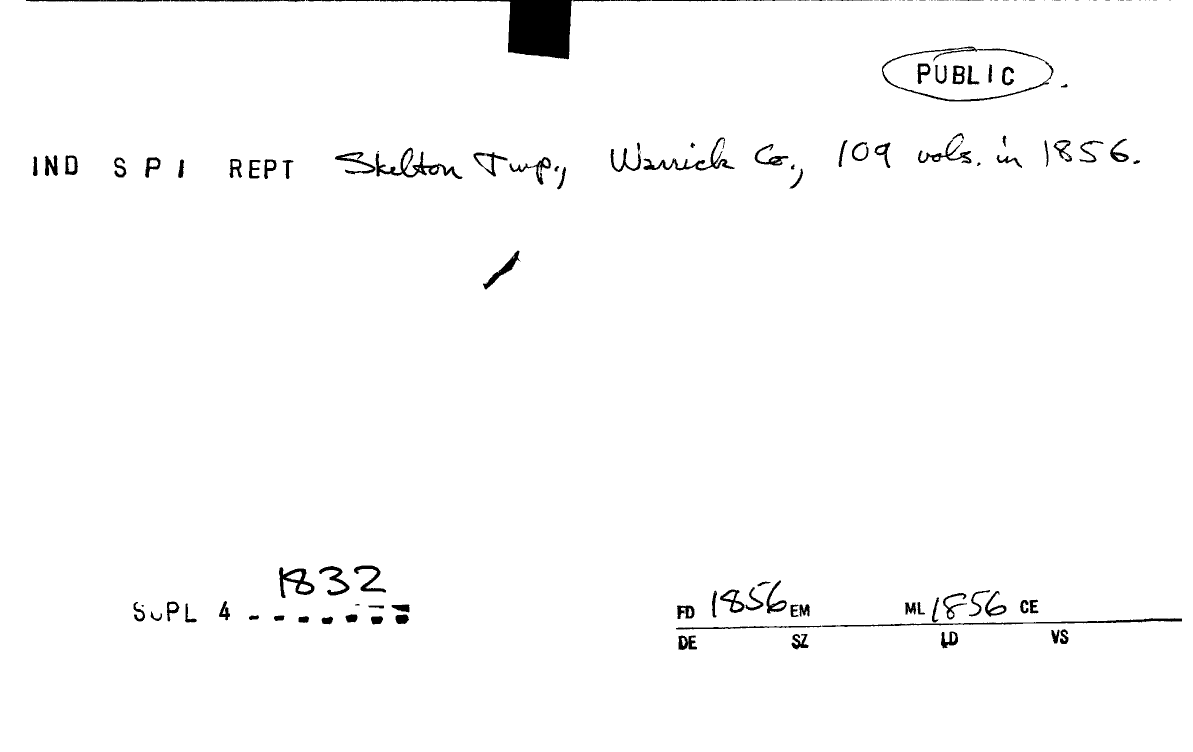 PUBLIC.
IND S P I REPT Skelton Twp., Warrick Co., 109 vols. in 1856.
1832
SUPL 4 - - - - - - -
FD 1856 EM ML 1856 CE
DE SZ LD VS